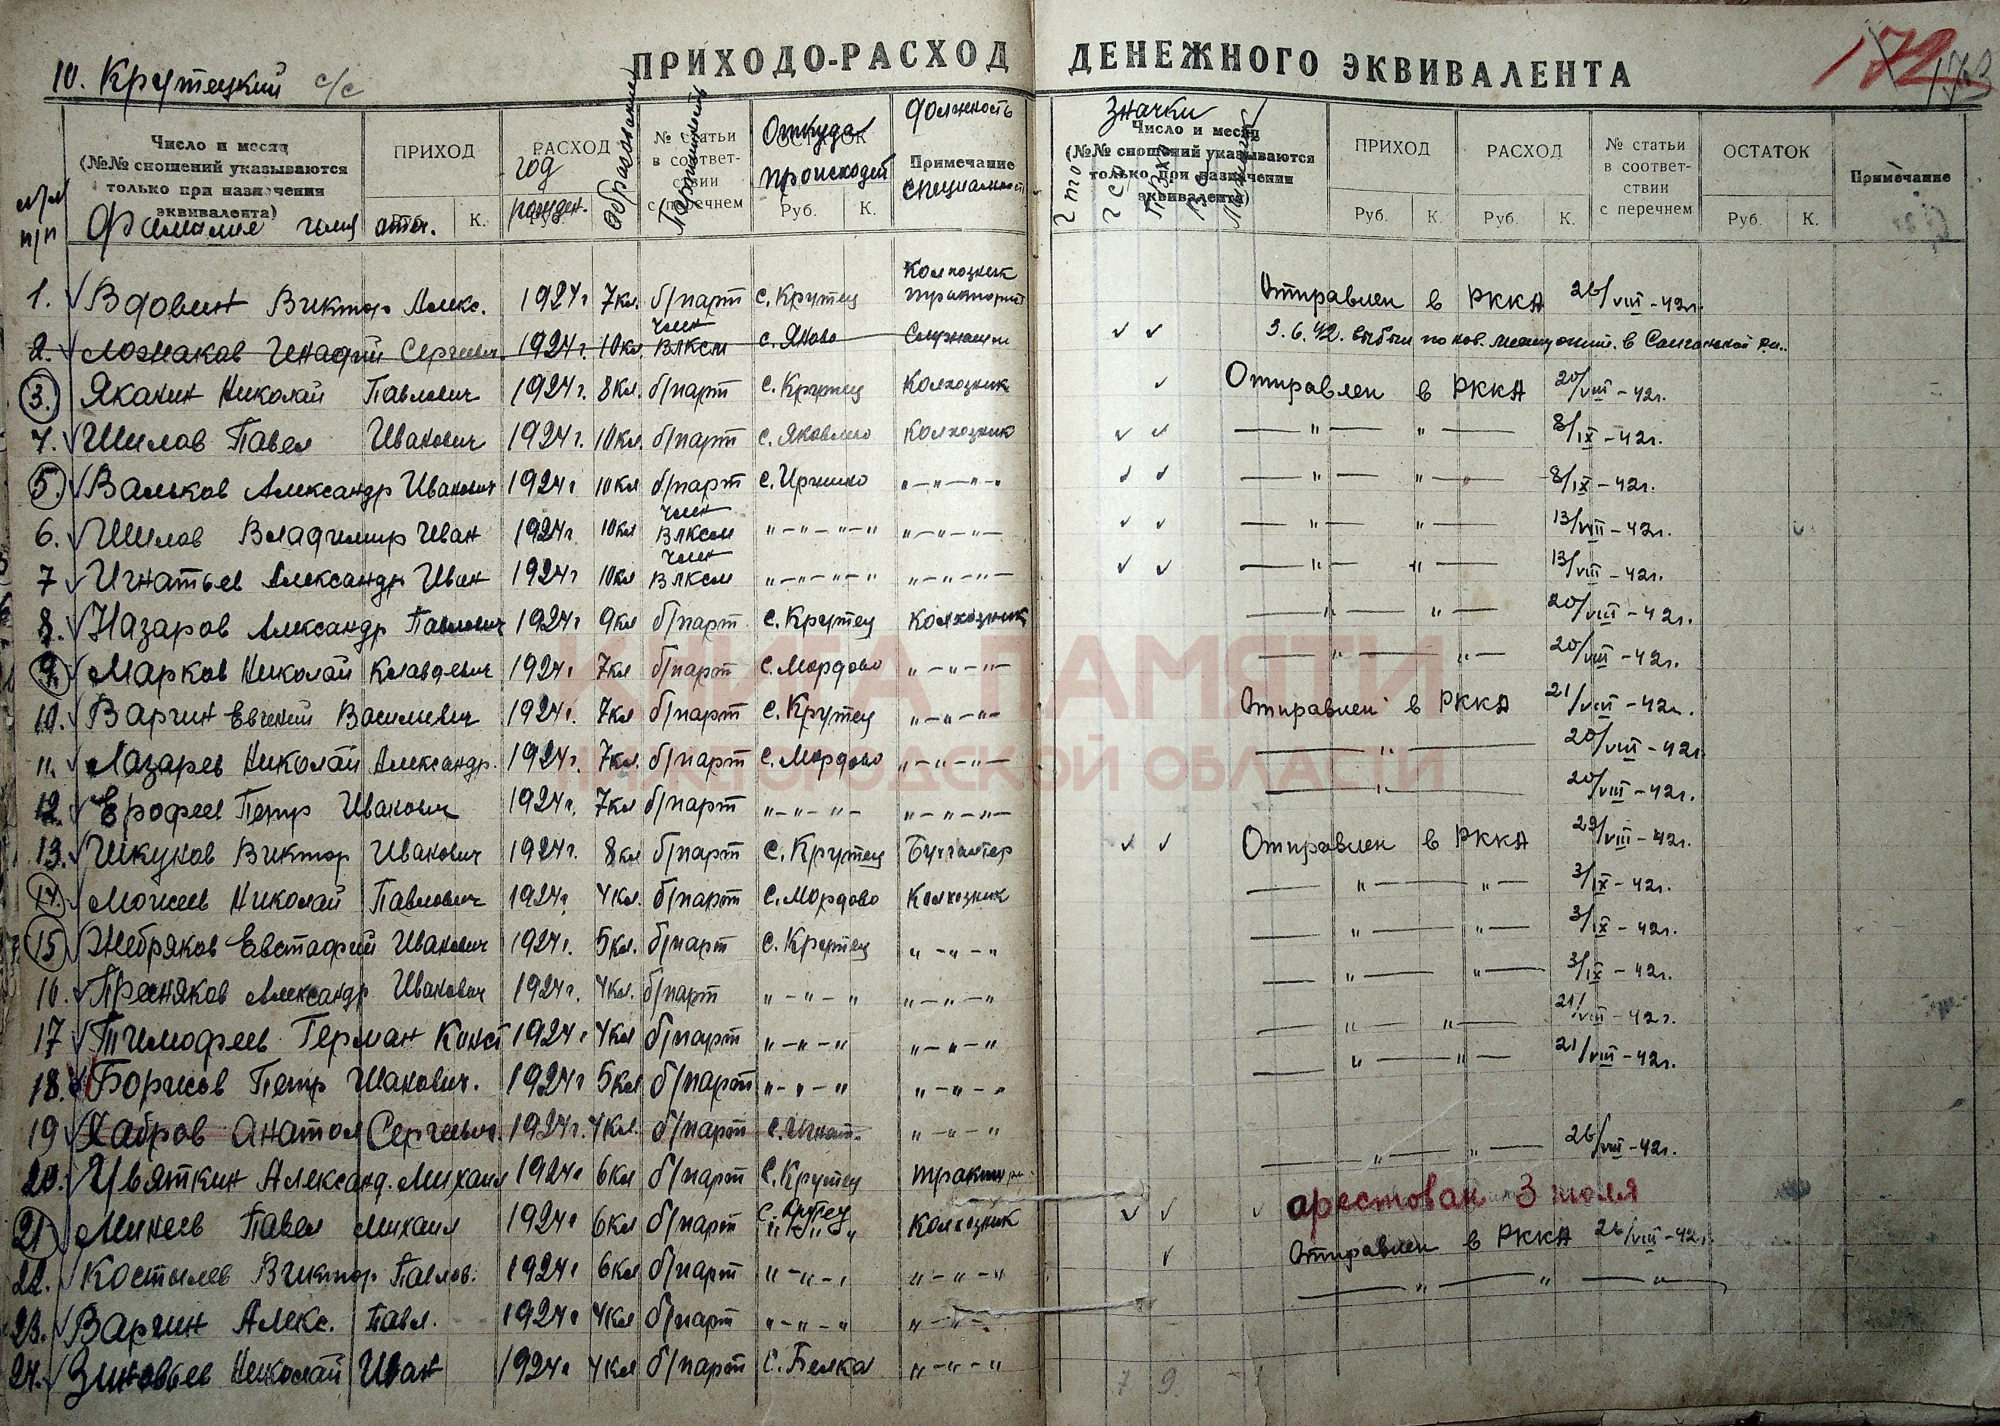 ПРИХОДО-РАСХОД ДЕНЕЖНОГО ЭКВИВАЛЕНТА
172 173
10. Крутецкий с/с
Число и месяц (№№ сношений указываются только при назначении эквивалента) ПРИХОД РАСХОД № статьи в соответствии с перечнем ОСТАТОК Примечание
Руб. К. Руб. Руб. К.
№/№ п/п Фамилие имя отч. год рожден. Образование Партийность Откуда происходит Должность специальность
Значки
Число и месяц (№№ сношений указываются только при назначении эквивалента) ПРИХОД РАСХОД № статьи в соответствии с перечнем ОСТАТОК Примечание
Руб. К. Руб. К. Руб. К.
ГТО ГСО ПВХО
1. Вдовин Виктор Алекс. 1924г 7кл. б/парт с. Крутец Колхозник тракторист Отправлен в РККА 26/VIII-42г.
2. Геннадий Сергеев. 1924г. 10кл член ВЛКСМ Служащий 3.6.42. выбыл
3. Яканин Николай Павлович 1924г. 8кл. б/парт с. Крутец Колхозник Отправлен в РККА 20/VIII-42г.
4. Шилов Павел Иванович 1924г. 10кл. б/парт Колхозник — " — " — 8/IX-42г.
5. Вальков Александр Иванович 1924г 10кл б/парт "—"—"—" — " — " — 8/IX-42г.
6. Шилов Владимир Иван 1924г. 10кл член ВЛКСМ "—"—"—" "—"—"— — " — " — 13/VIII-42г.
7 Игнатьев Александр Иван 1924г 10кл член ВЛКСМ "—"—"—" "—"—"— — " — " — 13/VIII-42г.
8. Назаров Александр Павлович 1924г 9кл б/парт с. Крутец Колхозник — " — " — 20/VIII-42г.
9. Марков Николай Клавдевич 1924г 7кл б/парт с. Мордово "—"—"— — " — " — 20/VIII-42г.
10. Варгин Евгений Василиевич 1924г. 7кл б/парт с. Крутец "—"—"— Отправлен в РККА 21/VIII-42г.
11. Лазарев Николай Александр. 1924г. 7кл. б/парт с. Мордово "—"—"— — " — 20/VIII-42г.
12. Ерофеев Петр Иванович 1924г. 7кл б/парт "—"—"— "—"—"— — " — 20/VIII-42г.
13. Шкунов Виктор Иванович 1924г. 8кл б/парт с. Крутец Бухгалтер Отправлен в РККА 29/VIII-42г.
14. Моисеев Николай Павлович 1924г. 4кл. б/парт с. Мордово Колхозник — " — " — 3/IX-42г.
15 Жебряков Евстафий Иванович 1924г. 5кл. б/парт с. Крутец "—"—" — " — " — 3/IX-42г.
16. Пресняков Александр Иванович 1924г. 4кл. б/парт "—"—" "—"—" — " — " — 3/IX-42г.
17 Тимофеев Герман Конст 1924г 4кл б/парт "—"—" "—"—" — " — " — 21/VIII-42г.
18. Борисов Петр Иванович. 1924г 5кл б/парт "—"—" "—"—" — " — " — 21/VIII-42г.
19 Хабров Анатол Сергеевич. 1924г. 4кл. б/парт "—"—"
20. Цвяткин Александ. Михаил 1924г 6кл б/парт с. Крутец трактори — " — " — 26/VIII-42г.
21 Минеев Павел Михаил 1924г 6кл б/парт с. Крутец Колхозник арестован 3 июля
22. Костылев Виктор Павлов. 1924г 6кл б/парт "—"—" "—"—" Отправлен в РККА 26/VIII-42г.
23. Варгин Алекс. Павл. 1924г 4кл б/парт "—"—" "—"— — " — " — "
24. Зиновьев Николай Иван 1924г 4кл б/парт с. Белка "—"—"
7 9. 1
КНИГА ПАМЯТИ
НИЖЕГОРОДСКОЙ ОБЛАСТИ